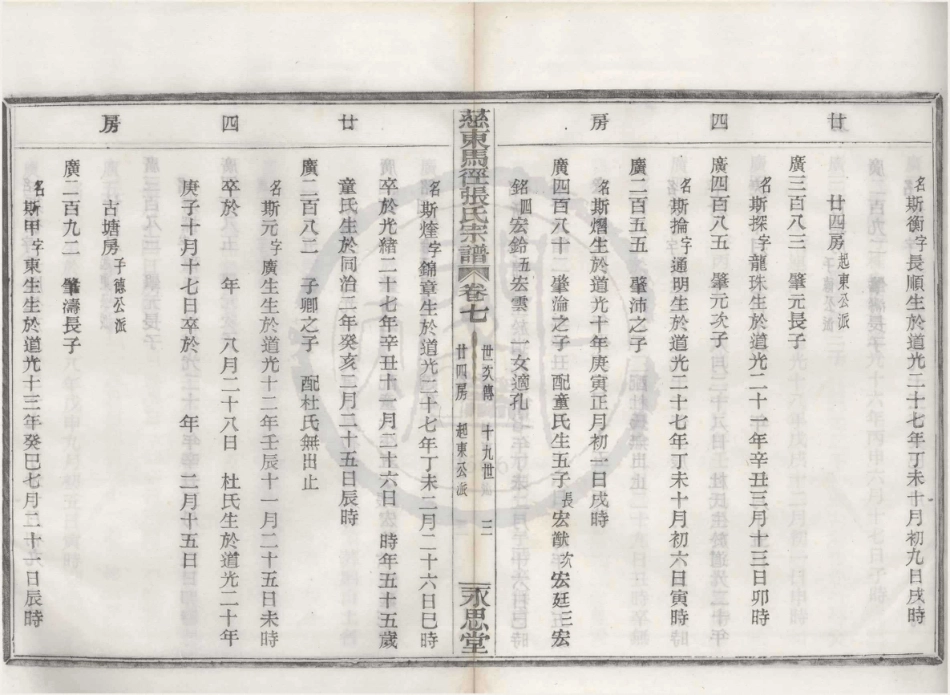 廿四房
名斯衡字長順生於道光二十七年丁未十月初九日戌時
廿四房起東公派
廣三百八三　肇元長子
名斯探字龍珠生於道光二十一年辛丑三月十三日卯時
廣四百八五　肇元次子
名斯掄字通明生於道光二十七年丁未十月初六日寅時
廣二百五五　肇沛之子
名斯熠生於道光十年庚寅正月初一日戌時
廣四百八十二　肇淪之子　配童氏生五子長宏猷次宏廷三宏
銘四宏鈴五宏雲　一女適孔
慈東馬徑張氏宗譜　卷七　世次傳　十九世　廿四房　起東公派　三　永思堂
廿四房
名斯煃字錦章生於道光二十七年丁未二月二十六日巳時
卒於光緒二十七年辛丑十一月二十六日　時年五十五歲
童氏生於同治二年癸亥二月二十五日辰時
廣二百八二　子卿之子　配杜氏無出止
名斯元字廣生生於道光十二年壬辰十一月二十五日未時
卒於　年　八月二十八日　杜氏生於道光二十年
庚子十月十七日卒於　年　二月十五日
古塘房子德公派
廣二百九二　肇濤長子
名斯甲字東生生於道光十三年癸巳七月二十一日辰時